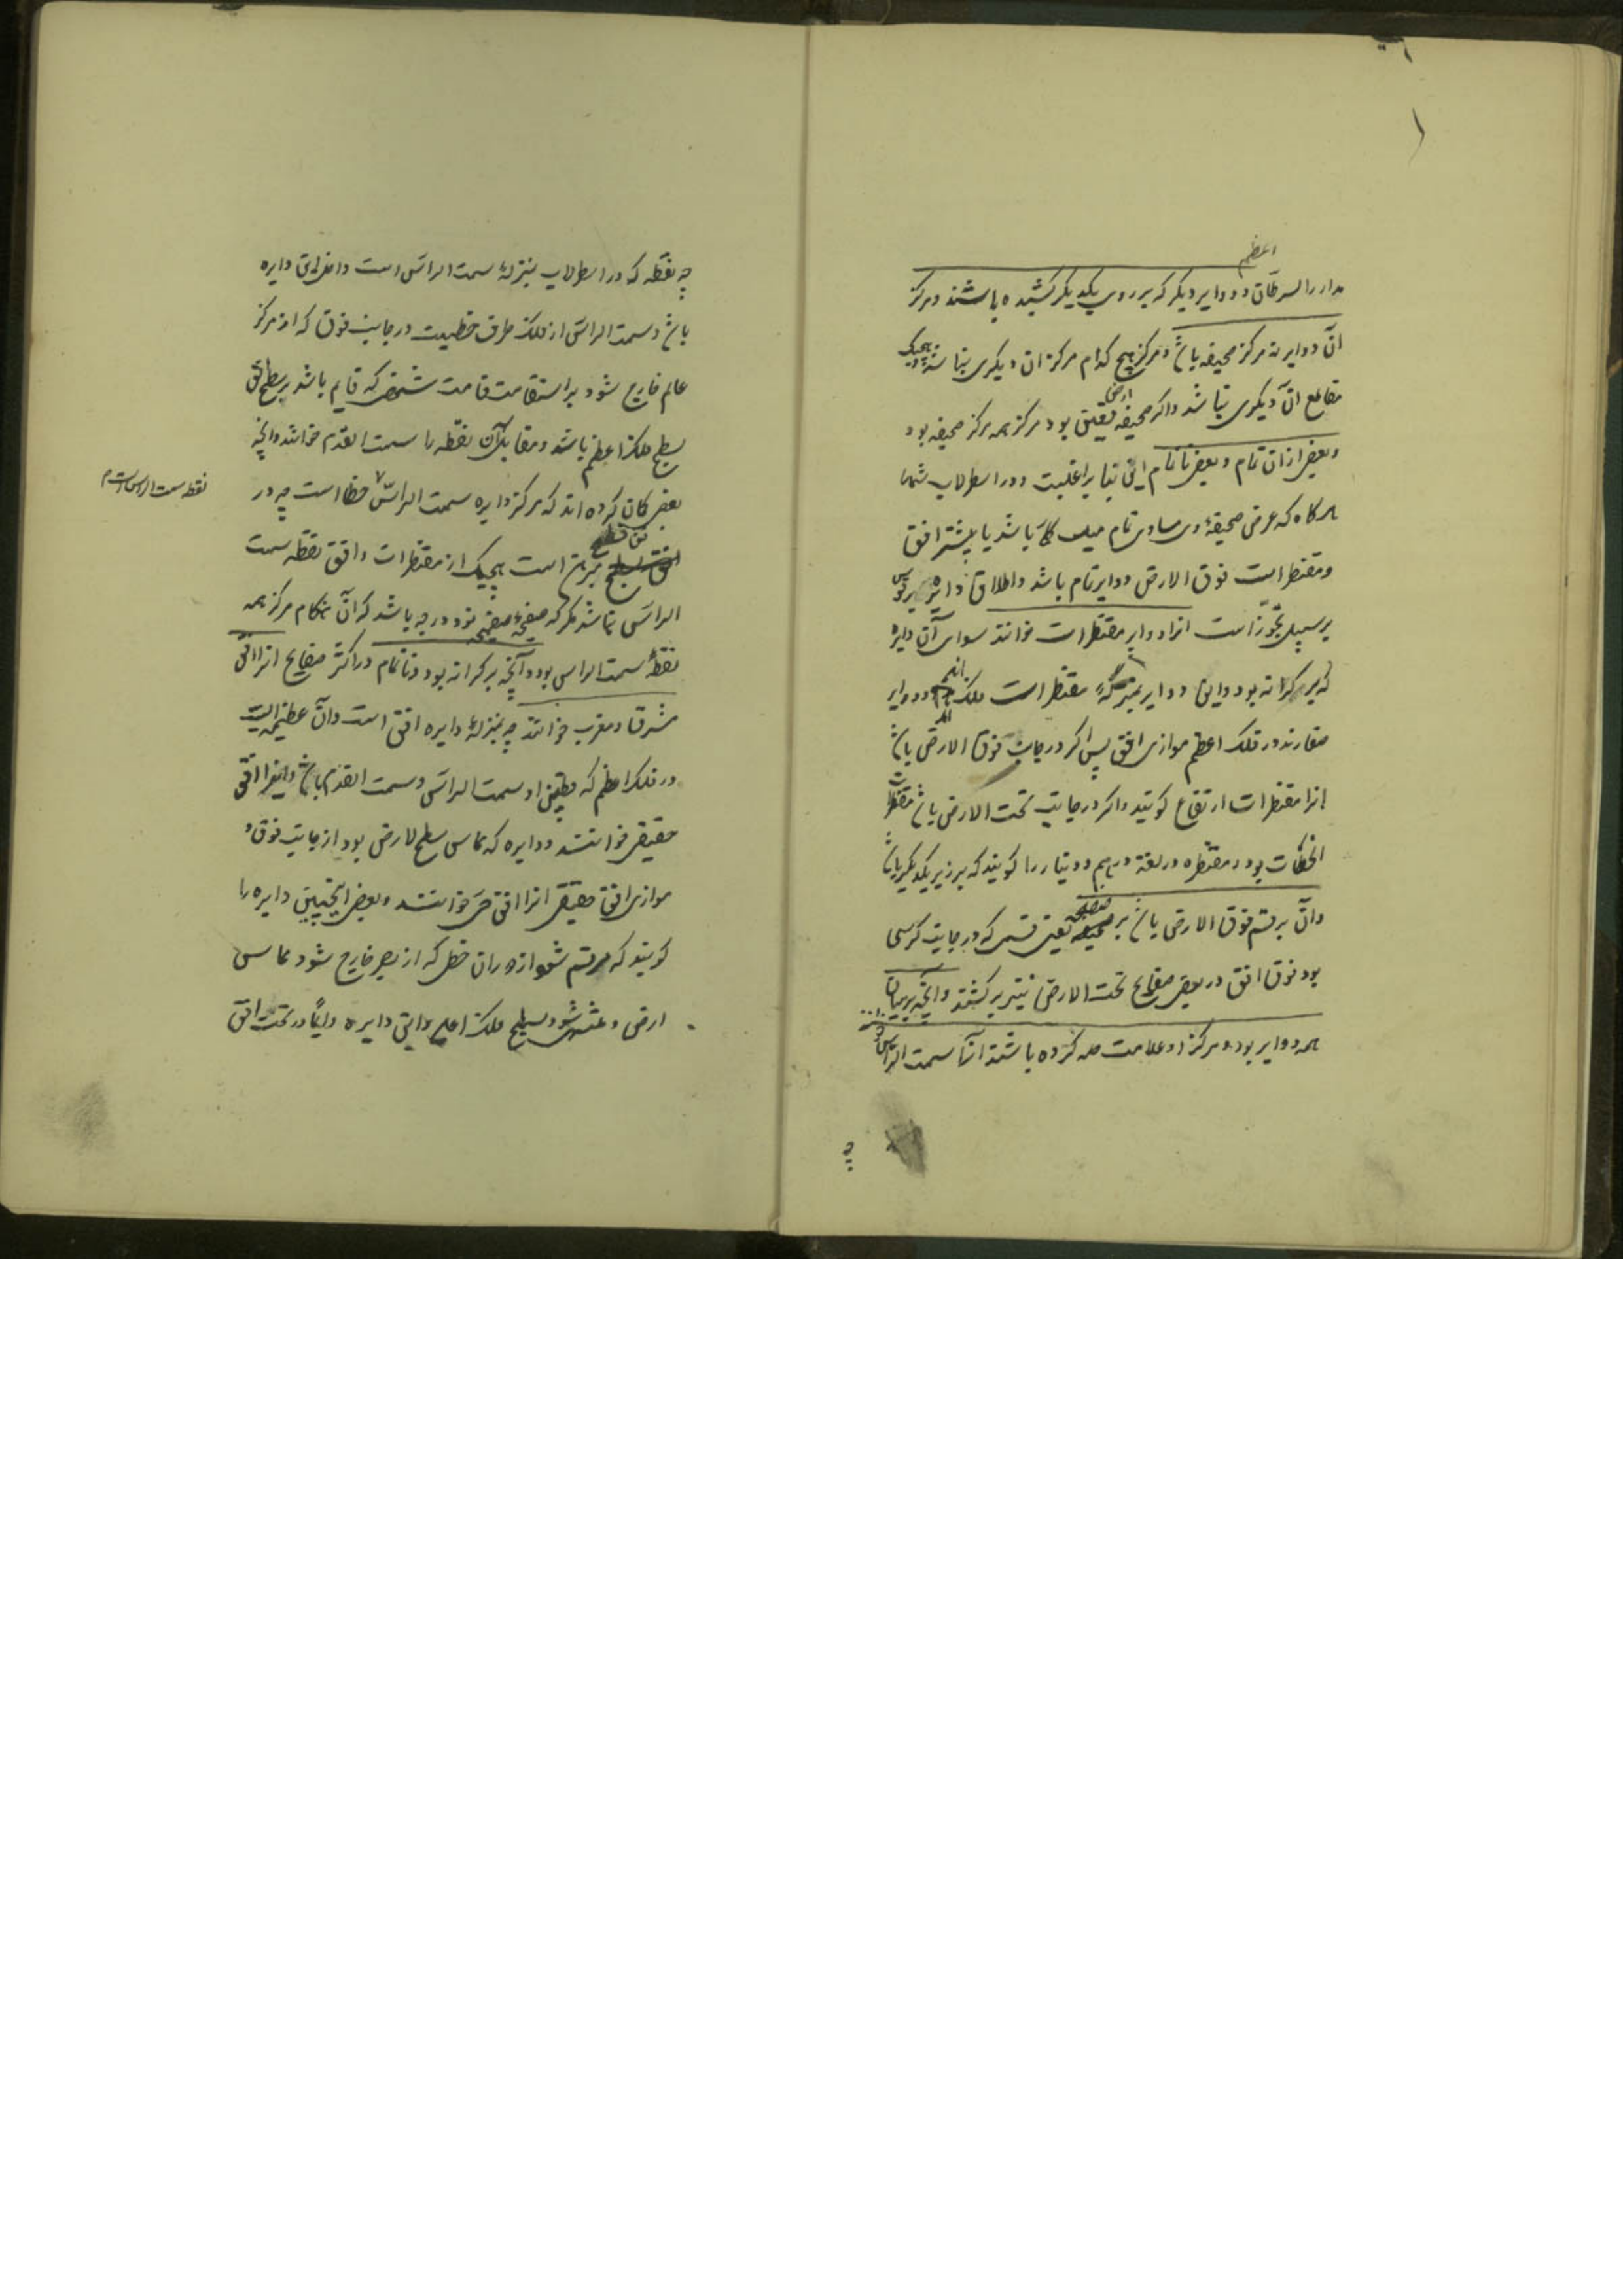 اعظم
مدار راسرطان و دوایر دیگر که بر روی یکدیگر کشیده باشند و مرکز
آن دوایر نه مرکز صحیفه باشد و مرکز هیچ کدام مرکز آن دیگری نباشد و هیچیک
مقاطع آن دیگری نباشد و اگر صحیفه تعیین بود مرکز همه مرکز صحیفه بود
و بعضی از آن تمام و بعضی ناتمام این بنا بر اغلبیت و در اسطرلاب شما
هر گاه که عرض صحیفه وی مساوی تمام میل کلی باشد یا بیشتر افق
و مقنطرات فوق الارض دوایر تمام باشد و اطلاق دایره بر قوس
بر سبیل تجوز است آنرا دوایر مقنطرات خوانند سوای آن دایره
که بر کرانه بود و این دوایر بمنزلهٔ مقنطرات فلک و دوایر
در فلک اعظم موازی افق پس اگر در جانب فوق الارض باشد
آنرا مقنطرات ارتفاع گویند و اگر در جانب تحت الارض باشد مقنطرات
انحطاط بود و مقنطره در لغة درهم و دینار را گویند که بر زیر یکدیگر باشد
و آن بر قسم فوق الارض باشد بر صفیحه یعنی قسمی که در جانب کرسی
بود فوق افق در بعضی صفایح تحت الارض نیز بر کشند و آنچه بر میان
همه دوایر بود و مرکز او علامت صه کرده باشند آنرا سمت الراس
چه
چه نقطه که در اسطرلاب بمنزلهٔ سمت الراس است داخل این دایره
باشد و سمت الراس از فلک طرف خطیست در جانب فوق که از مرکز
عالم خارج شود بر استقامت قامت شخصی که قایم باشد بر سطح افق
بسطح فلک اعظم باشد و مقابل آن نقطه را سمت القدم خوانند و آنچه
بعضی گمان کرده اند که مرکز دایره سمت الراس خطا است چه در
نقطه سمت الراس است
است هیچیک از مقنطرات و افق نقطه سمت
الراس نباشد مگر که صفحهٔ صفیحه نود درجه باشد که آن هنگام مرکز همه
نقطهٔ سمت الراس بود و آنچه بر کرانه بود و ناتمام در اکثر صفایح آنرا افق
مشرق و مغرب خوانند چه بمنزلهٔ دایره افق است و آن عظیمه ایست
در فلک اعظم که قطبین او سمت الراس و سمت القدم باشد و اینرا افق
حقیقی خوانند و دایره که مماس سطح الارض بود از جانب فوق و
موازی افق حقیقی آنرا افق حسی خوانند و بعضی دایره را
گویند که مرتسم شود از دوران خطی که از بصر خارج شود مماس
ارض و منتهی شود بسطح فلک اعلی و این دایره دایمًا در تحت افق